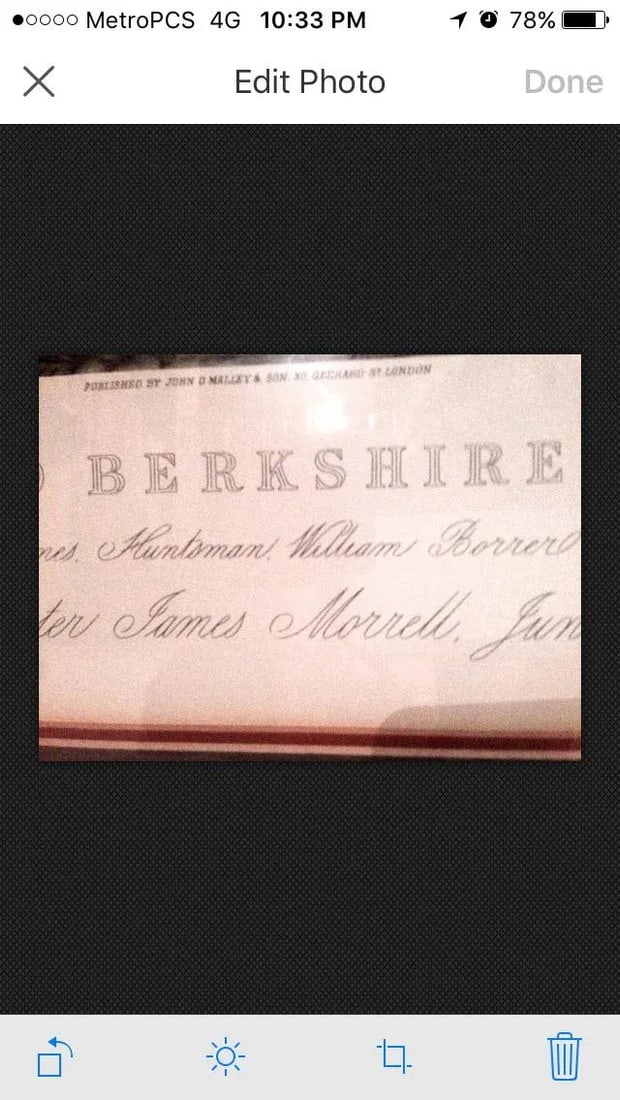 MetroPCS 4G 10:33 PM 78%
Edit Photo Done
PUBLISHED BY JOHN O MALLEY & SON. 30. GERRARD ST LONDON
BERKSHIRE
nes. Huntsman, William Borrer
ter James Morrell, Jun